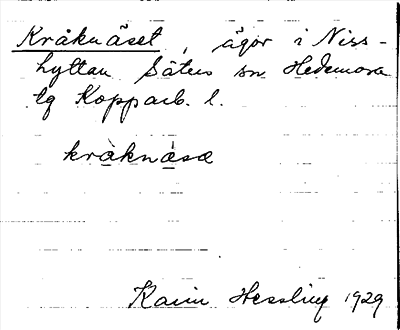 Kråknäset, ägor i Niss-
hyttan Säters sn. Hedemora
tg Kopparb. l.
kràknǽsæ
Karin Hessling 1929